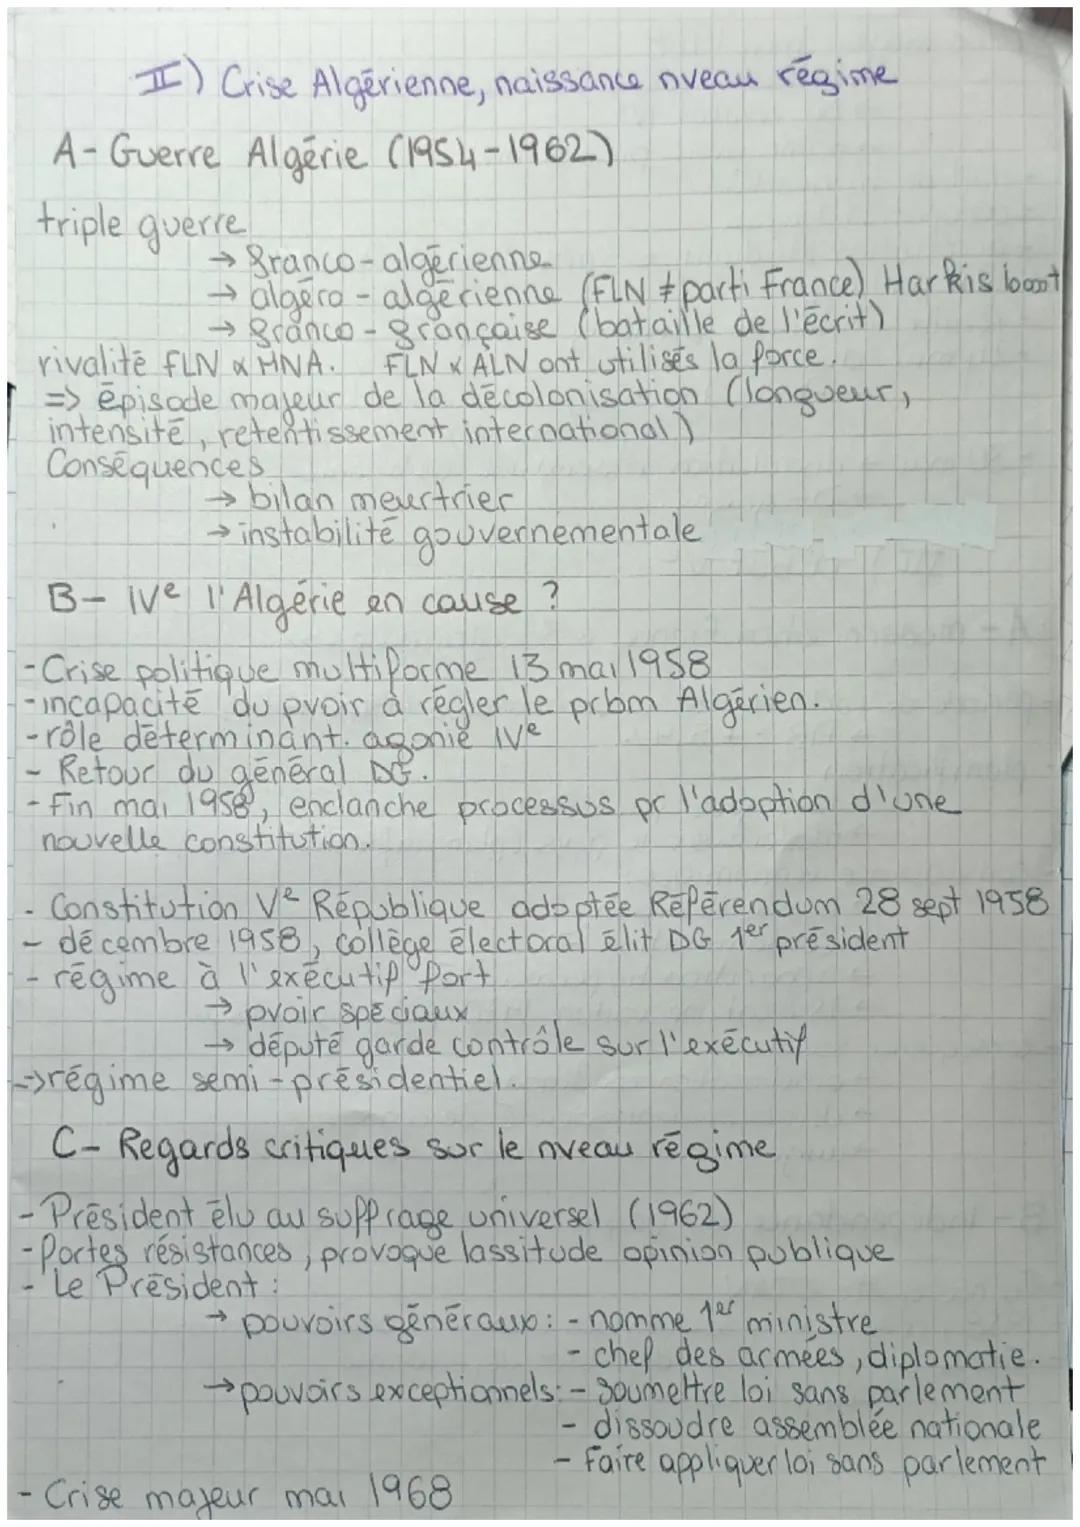 II) Crise Algérienne, naissance nveau régime
A- Guerre Algérie (1954-1962)
triple guerre
→ franco-algérienne
→ algéro-algérienne (FLN ≠ parti France) Harkis
→ franco-française (bataille de l'écrit)
rivalité FLN x MNA. FLN x ALN ont utilisés la force.
=> épisode majeur de la décolonisation (longueur,
intensité, retentissement international)
Conséquences
→ bilan meurtrier
→ instabilité gouvernementale
B- IVe l'Algérie en cause ?
- Crise politique multiforme 13 mai 1958
- incapacité du pvoir à régler le prbm Algérien.
- rôle déterminant. agonie IVe
- Retour du général DG.
- Fin mai 1958, enclanche processus pr l'adoption d'une
nouvelle constitution.
- Constitution Ve République adoptée Référendum 28 sept 1958
- décembre 1958, collège électoral élit DG 1er président
- régime à l'exécutif fort
→ pvoir spéciaux
→ député garde contrôle sur l'exécutif
=> régime semi-présidentiel.
C- Regards critiques sur le nveau régime
- Président élu au suffrage universel (1962)
- fortes résistances, provoque lassitude opinion publique
- Le Président :
→ pouvoirs généraux : - nomme 1er ministre
- chef des armées, diplomatie.
→ pouvoirs exceptionnels : - soumettre loi sans parlement
- dissoudre assemblée nationale
- faire appliquer loi sans parlement
- Crise majeur mai 1968